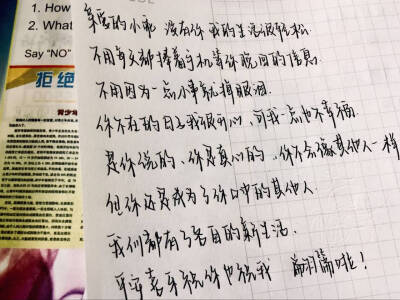 1. How
2. What
Say "NO"
拒绝
青少年
亲爱的小乖 没有你 我的生活很轻松
不用每天都捧着手机等你脱回的信息
不用因为一点小事就掉眼泪
你不在的日子我很开心、可我一点也不幸福
是你说的、你是真心的、你不会像其他人一样
但你还是成为了你口中的其他人.
我们都有了各自的新生活.
平安喜乐祝你也祝我 翩羽篇啦!